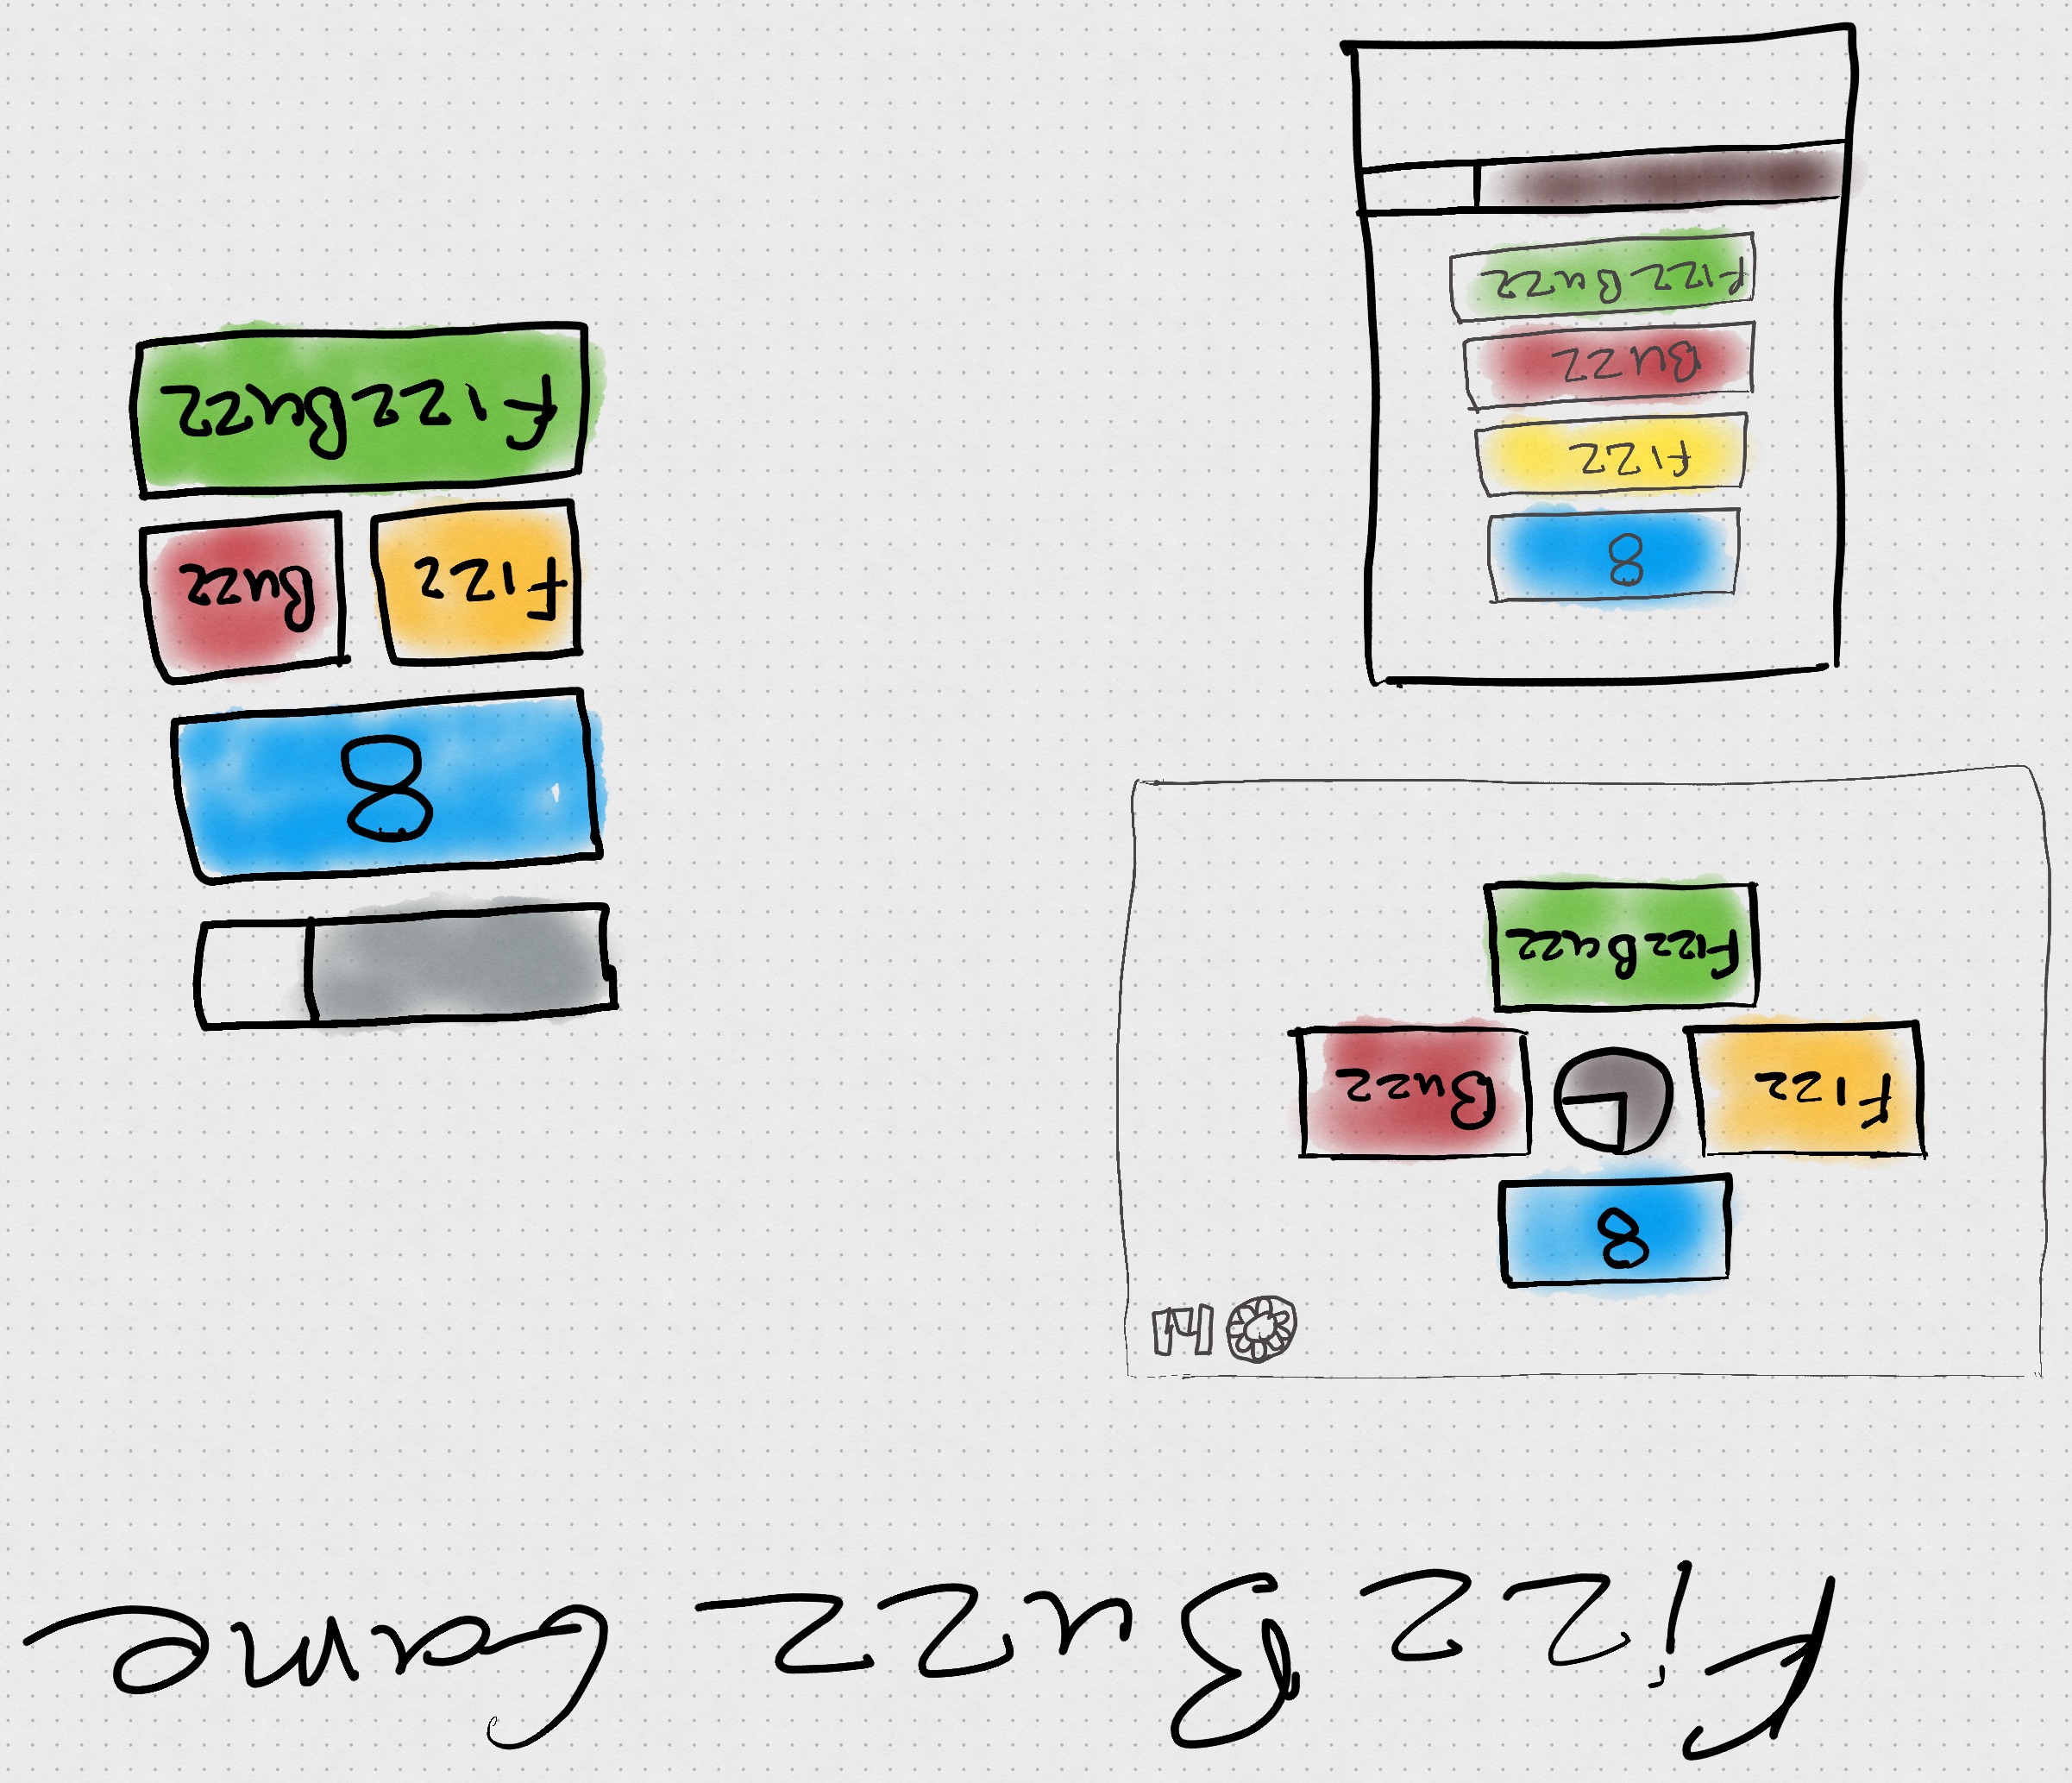 FizzBuzz Game
8
Fizz
Buzz
FizzBuzz
8
Fizz
Buzz
FizzBuzz
8
Fizz
Buzz
FizzBuzz